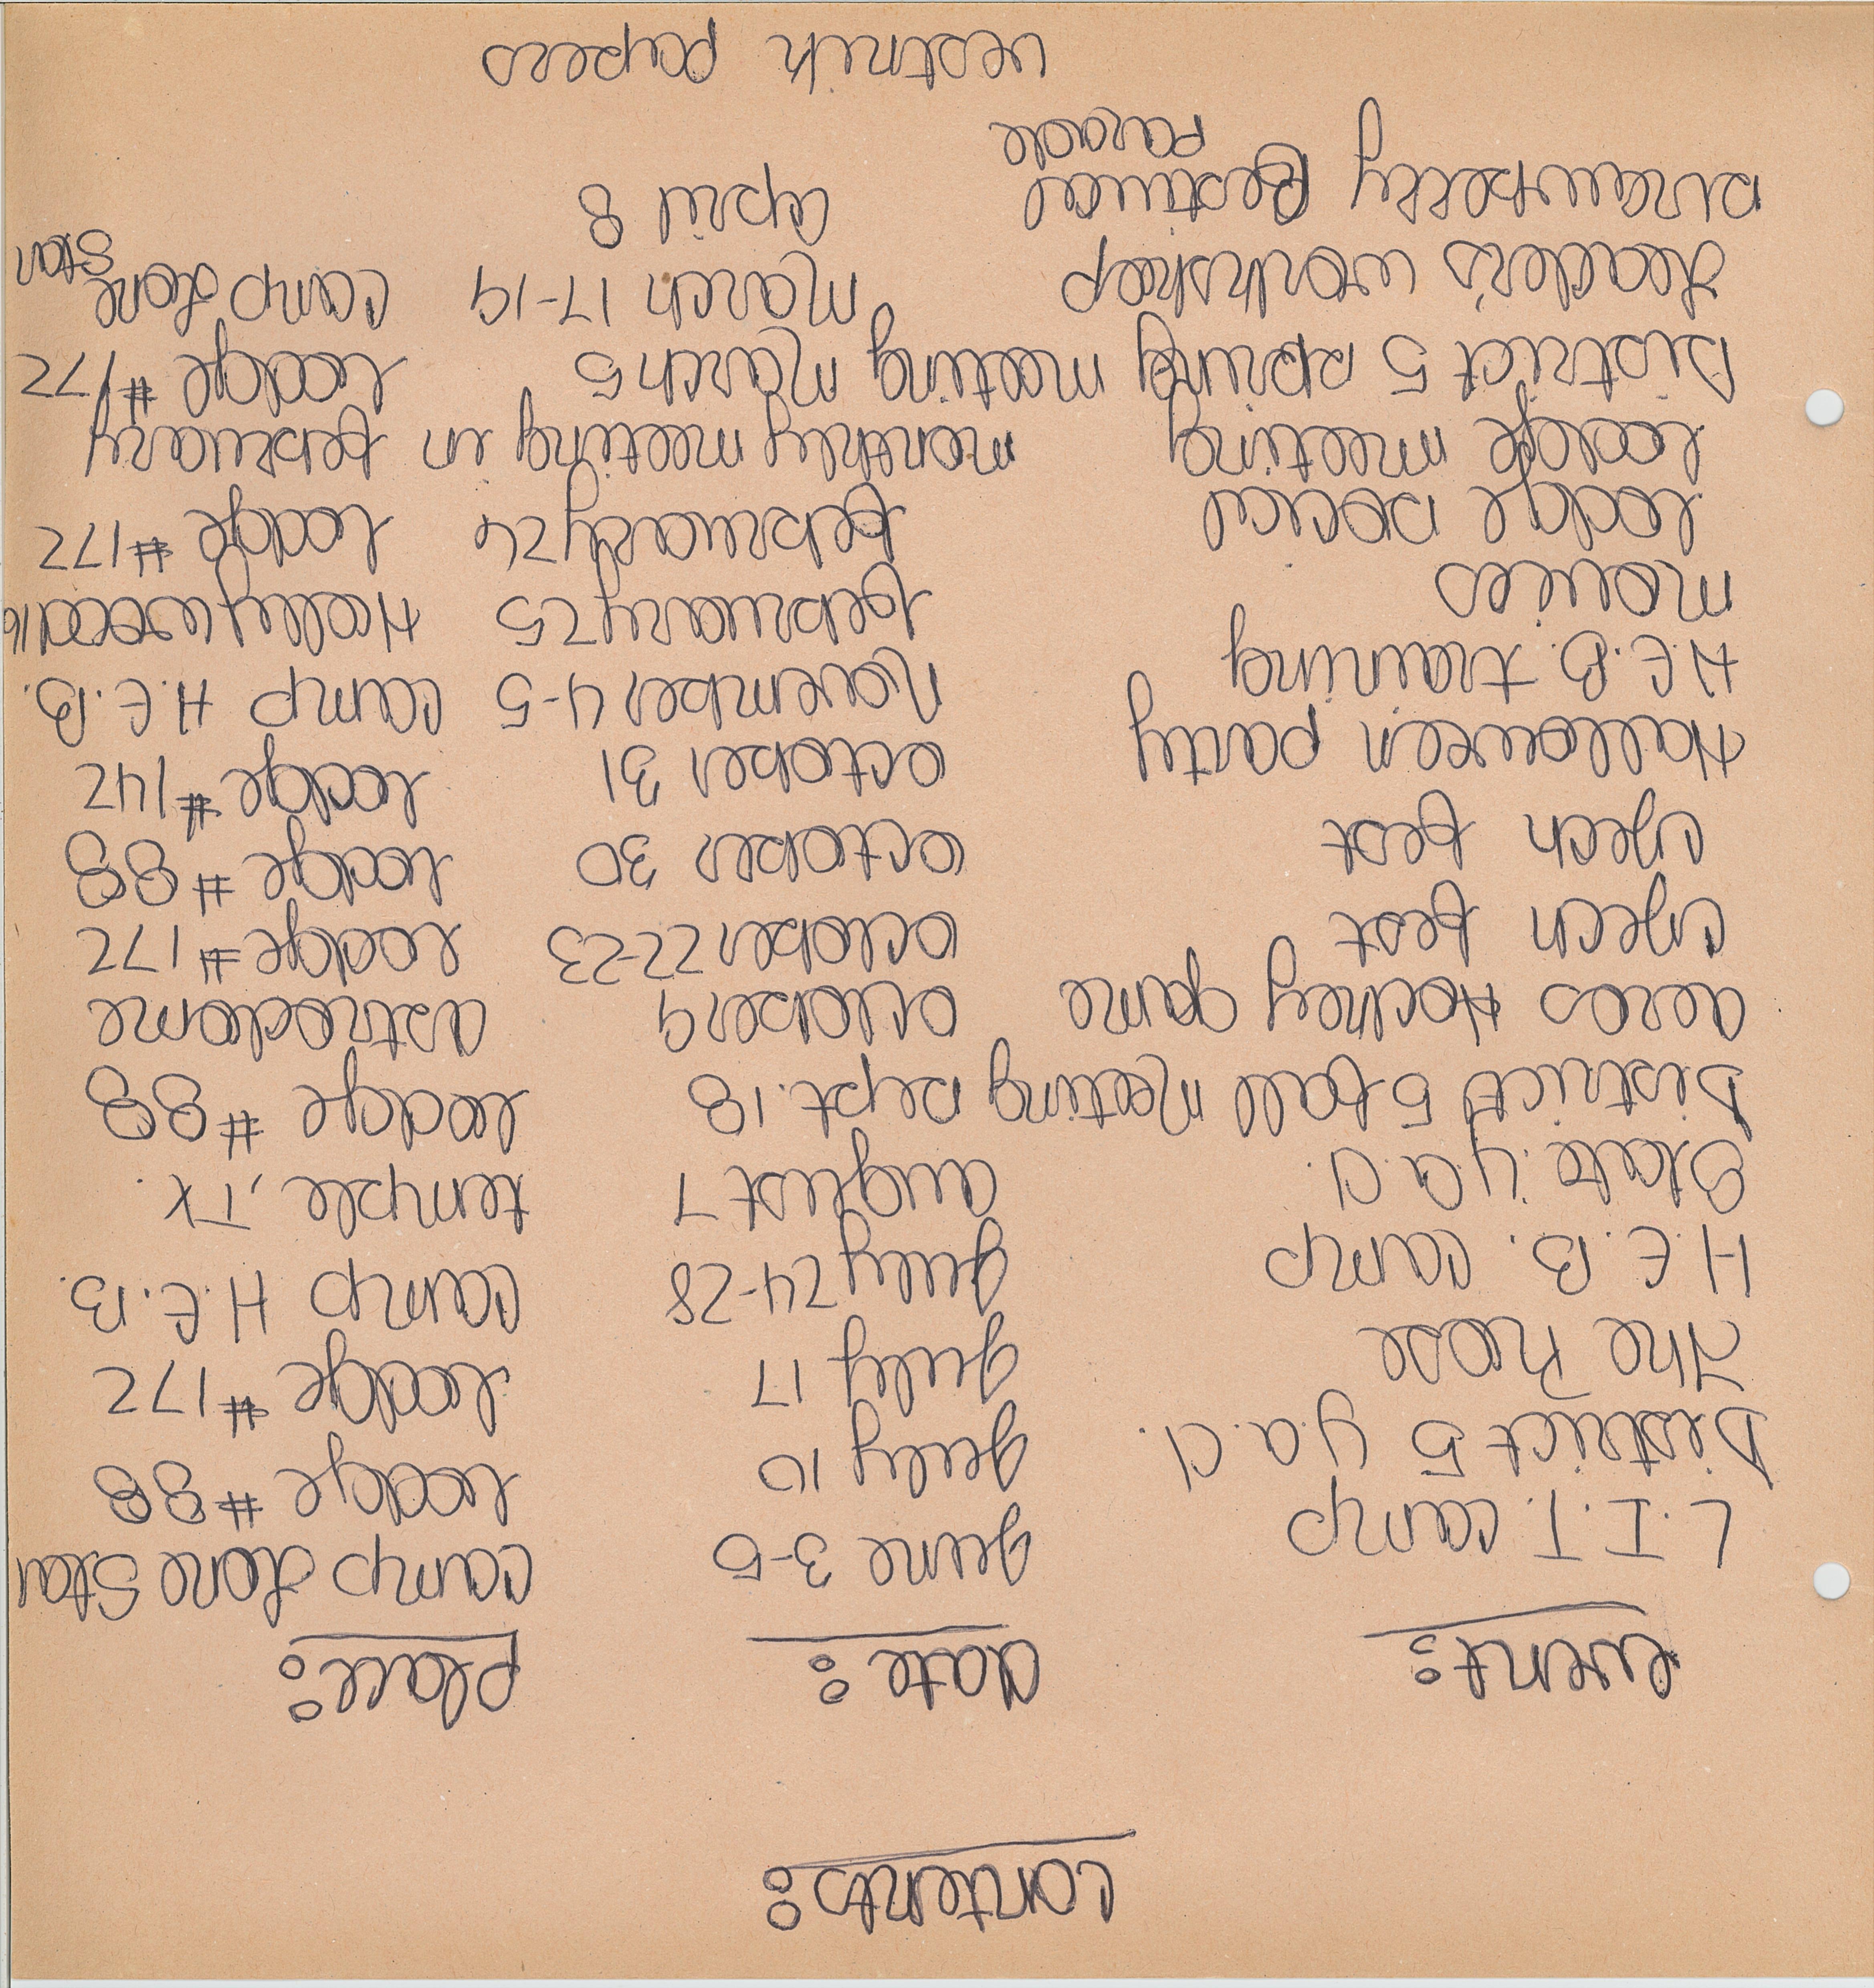 contents:
event: date: place:
L.I.T. camp June 3-5 camp Lone Star
District 5 y.a.d. July 10 Lodge #88
The Rose July 17 Lodge #172
H.E.B. camp July 24-28 Camp H.E.B.
State y.a.d. august 7 temple, TX.
District 5 fall meeting sept. 18 Lodge #88
aeros Hockey game october 9 astrodome
czech fest october 22-23 Lodge #172
czech fest october 30 Lodge #88
Halloween party october 31 Lodge #142
H.E.B. training November 4-5 camp H.E.B.
movies february 25 Hollywood 16
Lodge social february 26 Lodge #172
Lodge meeting monthly meeting in february
District 5 spring meeting march 5 Lodge #172
Leader's workshop March 17-19 camp Lone Star
strawberry Festival april 8
Parade
vestnik papers